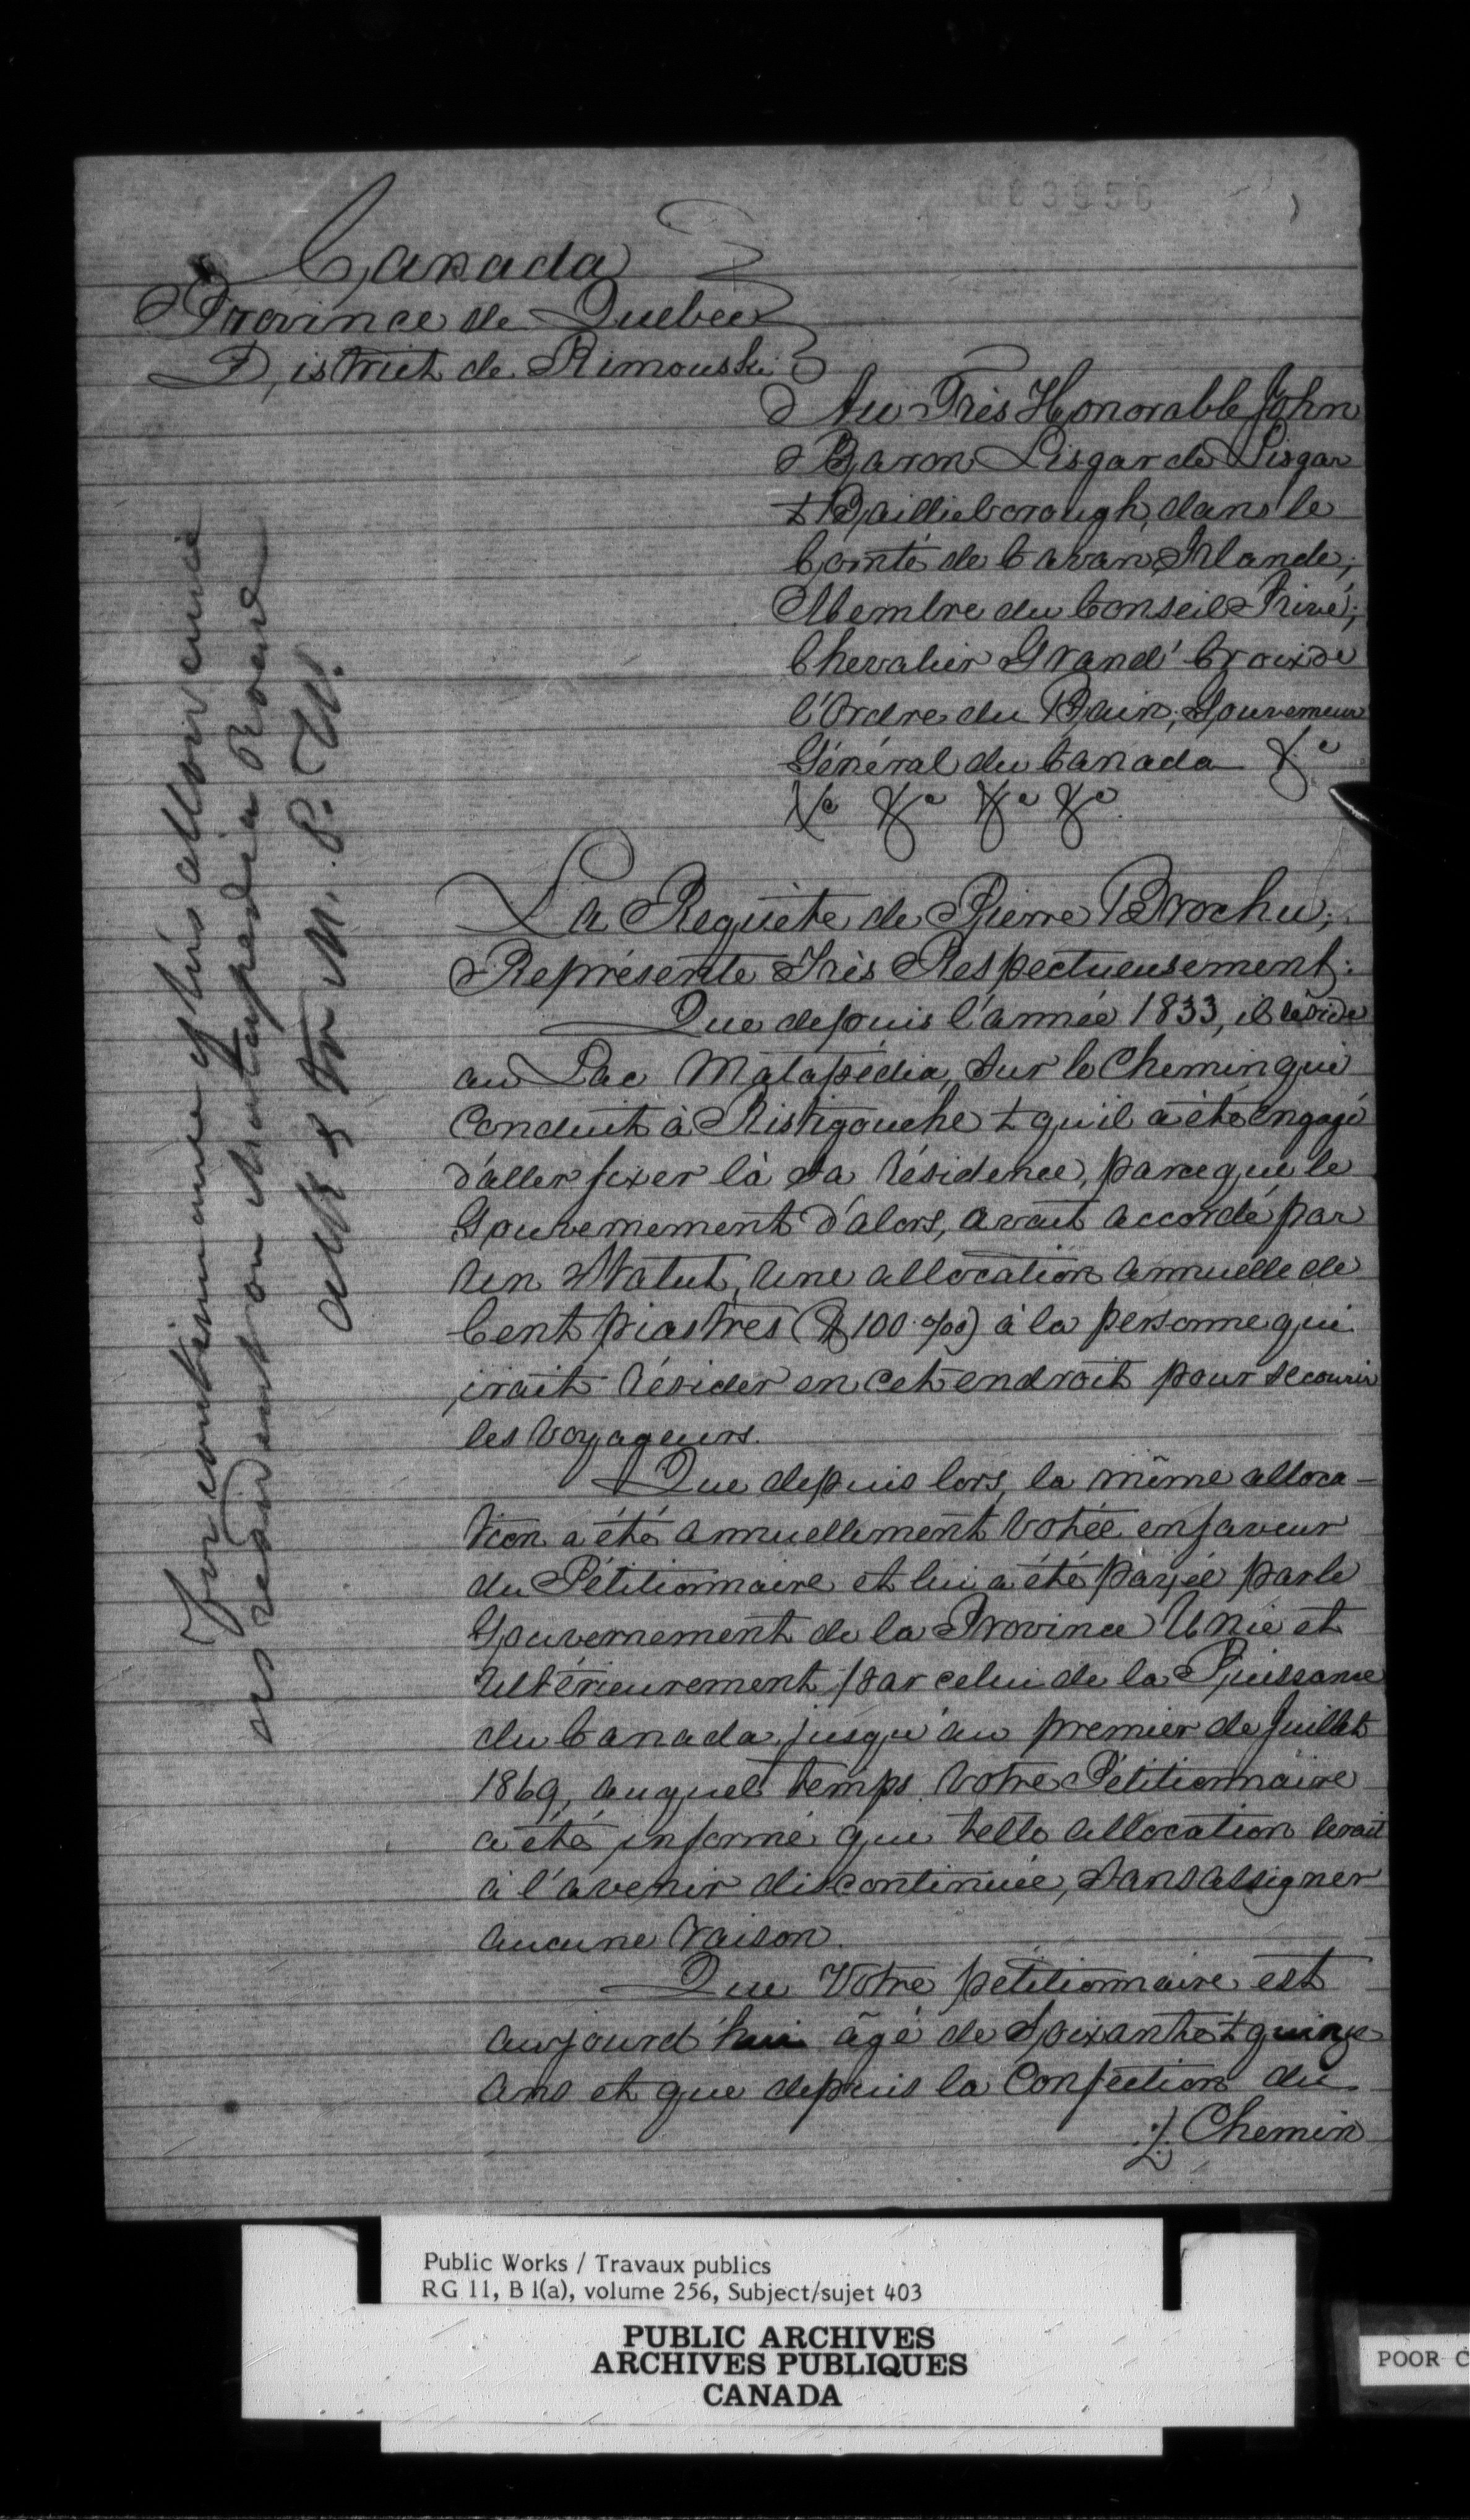 003950
Canada
Province de Quebec
District de Rimouski
Au Très Honorable John
Baron Lisgar de Lisgar
& Baillieborough, dans le
Comté de Cavan, Irlande;
Membre du Conseil Privé;
Chevalier Grand' Croix de
l'Ordre du Bain; Gouverneur
Général du Canada &c
&c &c &c &c.
La Requète de Pierre Brochu;
Représente Très Respectueusement:
Que depuis l'année 1833, il réside
au Lac Matapédia, sur le Chemin qui
Conduit à Ristigouche & qu'il a été engagé
d'aller fixer là sa résidence, parceque le
Gouvernement d'alors, avait accordé par
un Statut, une allocation annuelle de
Cent piastres ($100 0/00) à la personne qui
irait résider en cet endroit pour secourir
les voyageurs.
Que depuis lors, la même alloca-
tion a été annuellement votée en faveur
du Pétitionnaire et lui a été payée par le
Gouvernement de la Province Unie et
Ultérieurement par celui de la Puissance
du Canada, jusqu'au premier de Juillet
1869, auquel temps votre Pétitionnaire
a été informé que telle allocation serait
à l'avenir discontinuée, sans assigner
aucune raison.
Que Votre pétitionnaire est
aujourd'hui âgé de Soixante & quinze
ans et que depuis la Confection du
./. Chemin
For continuance of his allowance
as resident on Matapedia Road
all & to M. P. W.
Public Works / Travaux publics
RG 11, B 1(a), volume 256, Subject/sujet 403
PUBLIC ARCHIVES
ARCHIVES PUBLIQUES
CANADA
POOR C